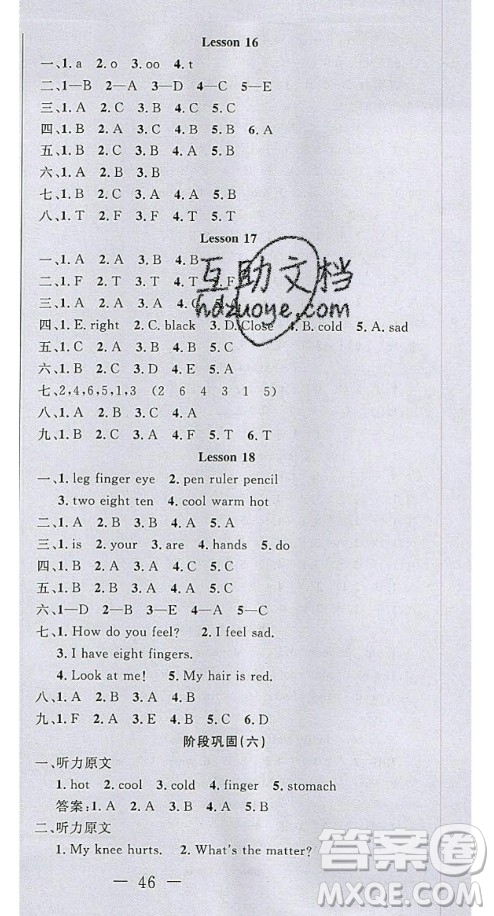 Lesson 16
一、1. a 2. o 3. oo 4. t
二、1—B 2—A 3—D 4—C
三、1. A 2. C 3. B 4. A 5. C
四、1. B 2. A 3. C 4. B 5. B 6. A
五、1. B 2. C 3. C 4. A 5. B
六、1. A 2. B 3. A
七、1. B 2. C 3. A 4. C 5. A
八、1. T 2. F 3. F 4. F 5. T
Lesson 17
一、1. A 2. B 3. A 4. B
二、1. F 2. T 3. T 4. T
三、1. A 2. B 3. A 4. C
四、1. E. right 2. C. black 3. D. Close 4. B. cold 5. A. sad
五、1. C 2. B 3. A 4. C 5. B
六、1. B 2. C 3. C 4. A 5. A
七、2,4,6,5,1,3 (2 6 4 3 1 5)
八、1. A 2. C 3. A 4. C 5. A
九、1. F 2. F 3. T 4. F 5. T
Lesson 18
一、1. leg finger eye 2. pen ruler pencil
3. two eight ten 4. cool warm hot
二、1. A 2. B 3. A 4. A 5. A
三、1. is 2. your 3. are 4. hands 5. do
四、1. C 2. B 3. B 4. C 5. A
五、1. A 2. B 3. A 4. C 5. B
六、1—D 2—B 3—E 4—A 5—C
七、1. How do you feel? 2. I feel sad.
3. I have eight fingers.
4. Look at me! 5. My hair is red.
八、1. A 2. B 3. B 4. A 5. A
九、1. F 2. E 3. A 4. B 5. C 6. D
阶段巩固(六)
一、听力原文
1. hot 2. cool 3. cold 4. finger 5. stomach
答案:1. A 2. A 3. B 4. A 5. B
二、听力原文
1. My knee hurts. 2. What's the matter?
— 46 —
互助文档
hdzuoye.com
答案圈
MXQE.COM